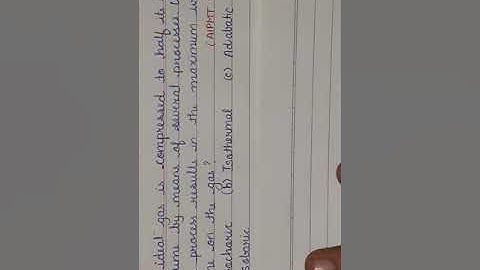 ideal gas is compressed to half its
ume by means of several processes
process results in the maximum
ne on the gas? (AIPMT
sochoric (b) Isothermal (c) Adiabatic
sobaric